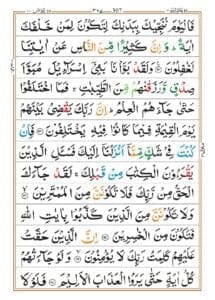 فَالْيَوْمَ نُنَجِّيْكَ بِبَدَنِكَ لِتَكُوْنَ لِمَنْ خَلْفَكَ
اٰيَةً ؕ وَاِنَّ كَثِيْرًا مِّنَ النَّاسِ عَنْ اٰيٰتِنَا
لَغٰفِلُوْنَ وَلَقَدْ بَوَّاْنَا بَنِيْٓ اِسْرَآءِيْلَ مُبَوَّاَ
صِدْقٍ وَّرَزَقْنٰهُمْ مِّنَ الطَّيِّبٰتِ ۚ فَمَا اخْتَلَفُوْا
حَتّٰى جَآءَهُمُ الْعِلْمُ ؕ اِنَّ رَبَّكَ يَقْضِيْ بَيْنَهُمْ
يَوْمَ الْقِيٰمَةِ فِيْمَا كَانُوْا فِيْهِ يَخْتَلِفُوْنَ فَاِنْ
كُنْتَ فِيْ شَكٍّ مِّمَّآ اَنْزَلْنَآ اِلَيْكَ فَسْـَٔلِ الَّذِيْنَ
يَقْرَءُوْنَ الْكِتٰبَ مِنْ قَبْلِكَ ۚ لَقَدْ جَآءَكَ
الْحَقُّ مِنْ رَّبِّكَ فَلَا تَكُوْنَنَّ مِنَ الْمُمْتَرِيْنَ
وَلَا تَكُوْنَنَّ مِنَ الَّذِيْنَ كَذَّبُوْا بِاٰيٰتِ اللّٰهِ
فَتَكُوْنَ مِنَ الْخٰسِرِيْنَ اِنَّ الَّذِيْنَ حَقَّتْ
عَلَيْهِمْ كَلِمَتُ رَبِّكَ لَا يُؤْمِنُوْنَ وَلَوْ جَآءَتْهُمْ
كُلُّ اٰيَةٍ حَتّٰى يَرَوُا الْعَذَابَ الْاَلِيْمَ فَلَوْلَا